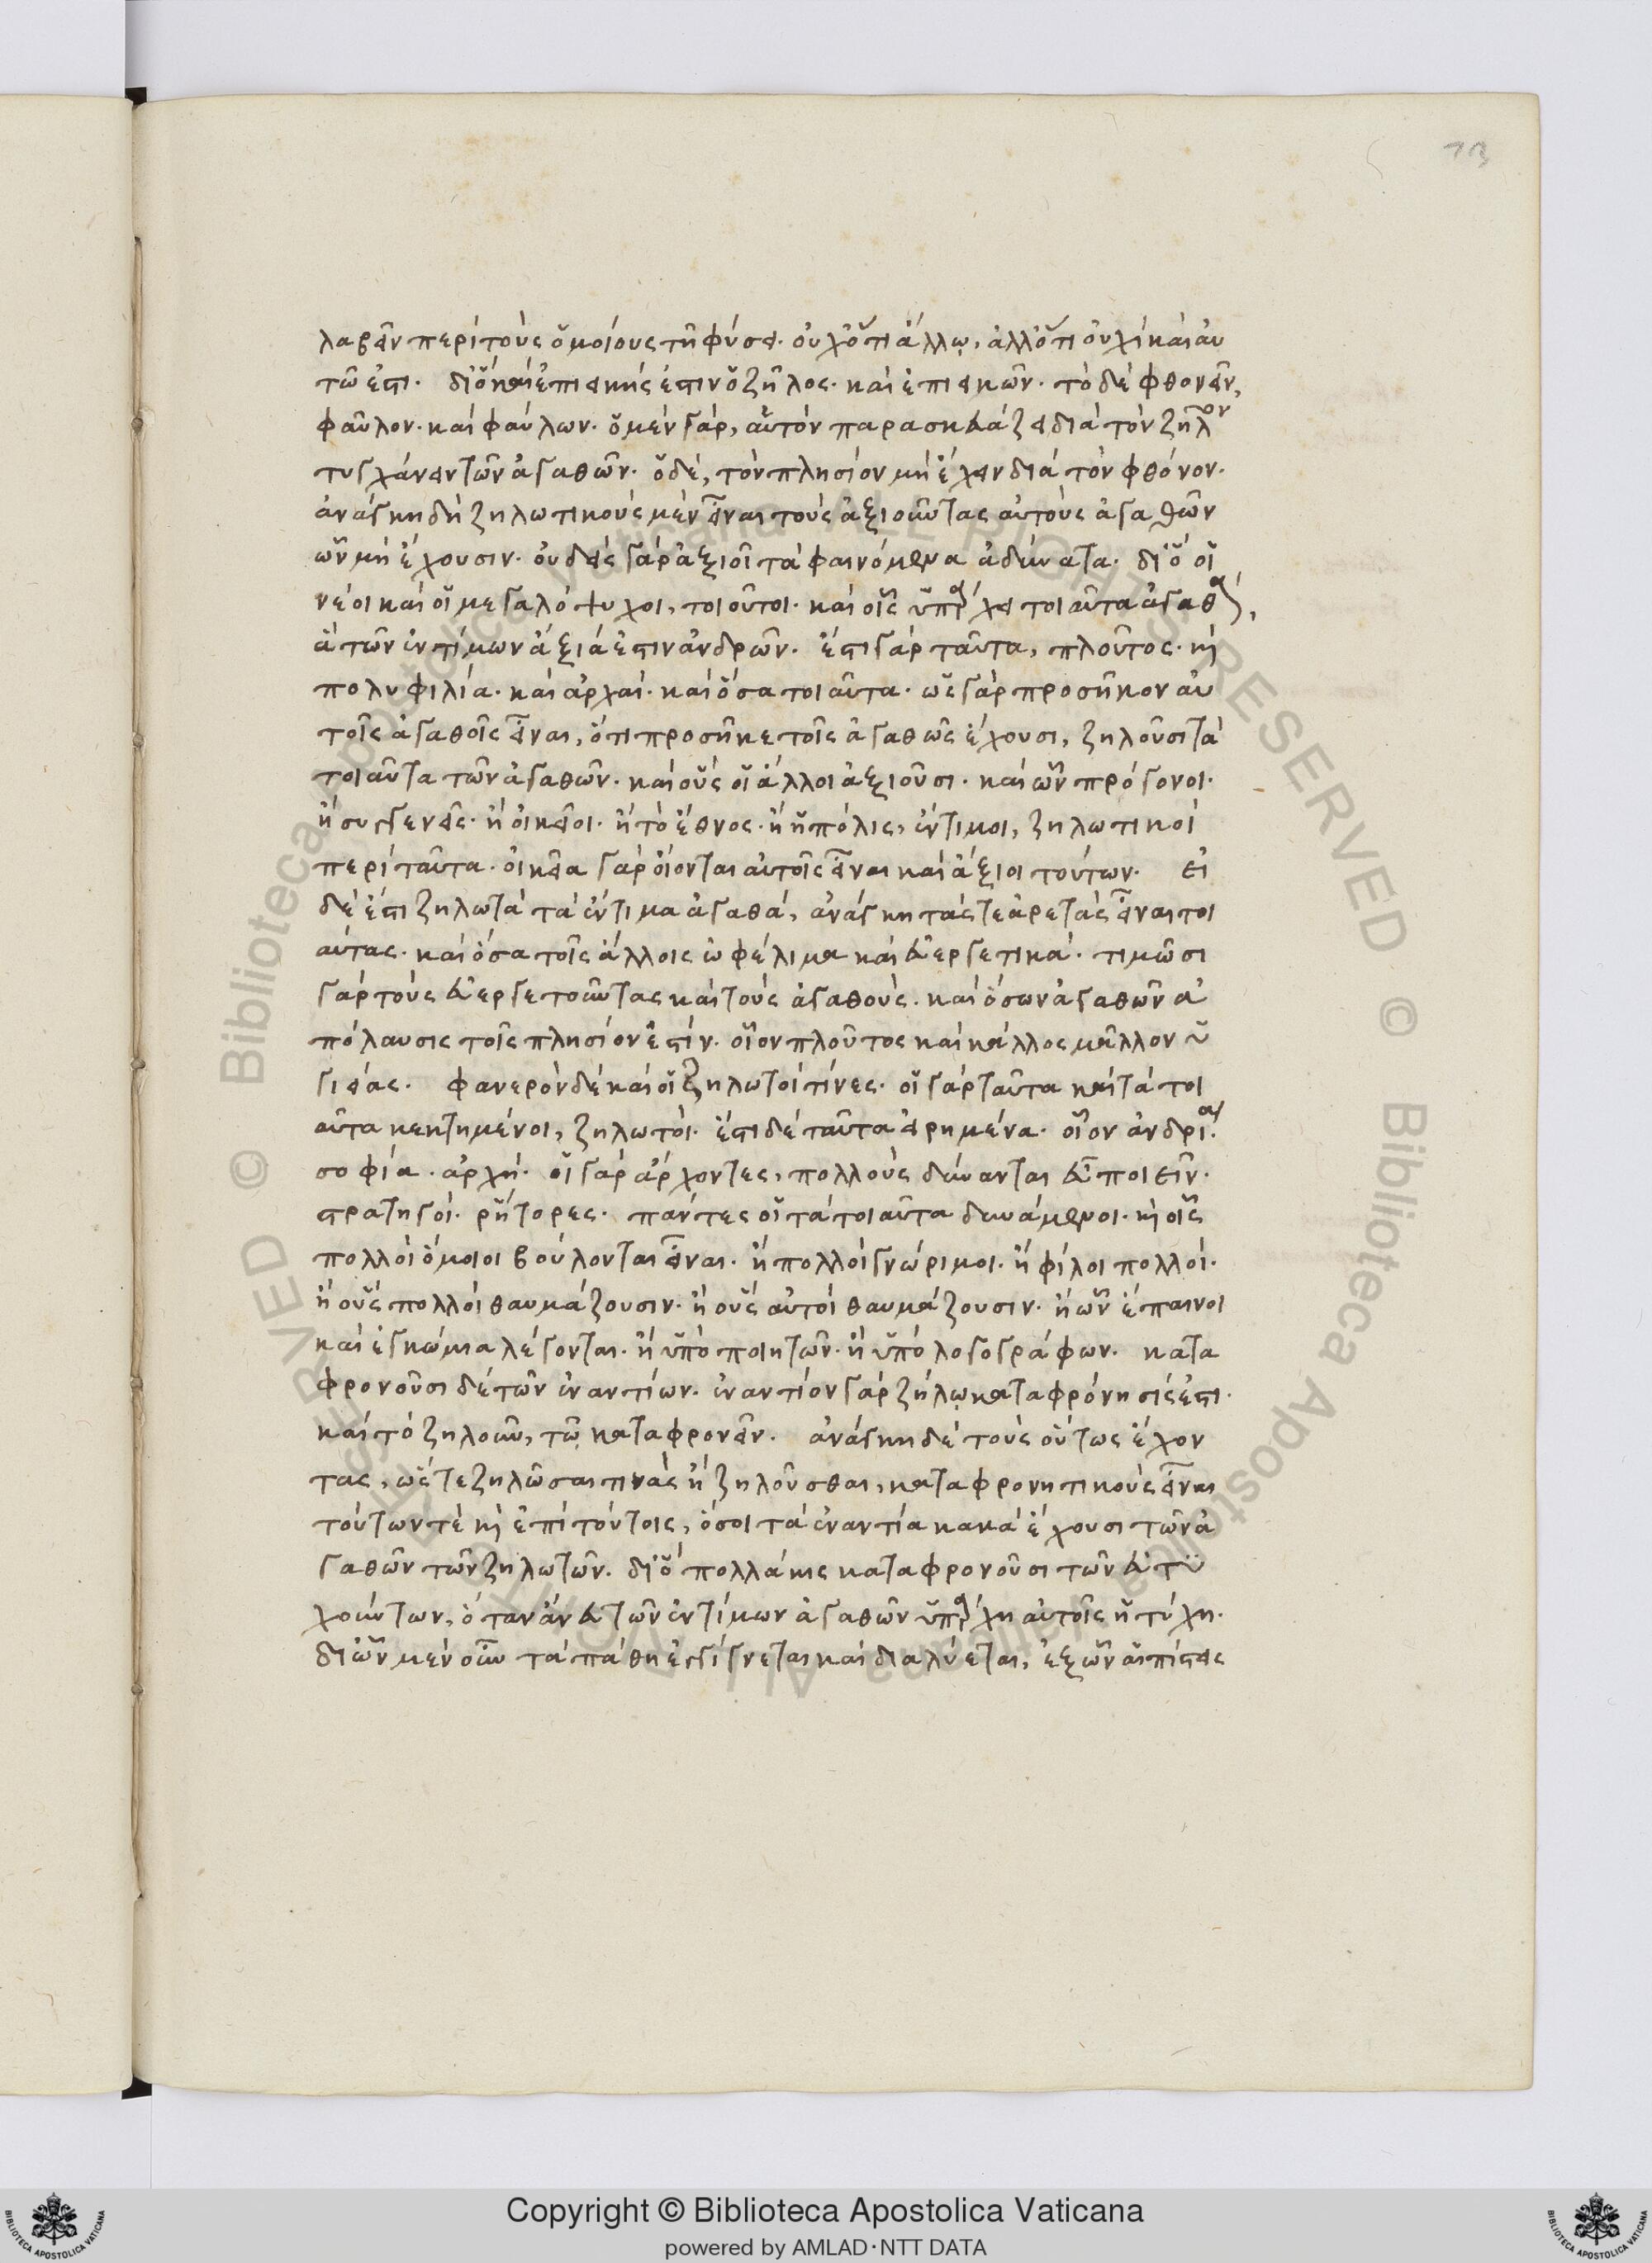 73
λαβεῖν περὶ τοὺς ὁμοίους τῆ φύσει· οὐχ ὅτι ἄλλῳ, ἀλλ ὅτι οὐχὶ καὶ αὐ
τῶ ἐστι· διὸ καὶ ἐπιεικής ἐστιν ὁ ζῆλος· καὶ ἐπιεικῶν· τὸ δὲ φθονεῖν,
φαῦλον· καὶ φαύλων· ὁ μὲν γὰρ, αὑτὸν παρασκευάζει διὰ τὸν ζῆλον
τυγχάνειν τῶν ἀγαθῶν· ὁ δὲ, τὸν πλησίον μὴ ἔχειν διὰ τὸν φθόνον·
ἀνάγκη δὴ ζηλωτικοὺς μὲν εἶναι τοὺς ἀξιοῦντας αὑτοὺς ἀγαθῶν
ὧν μὴ ἔχουσιν· οὐδεὶς γὰρ ἀξιοῖ τὰ φαινόμενα ἀδύνατα· διὸ οἱ
νέοι καὶ οἱ μεγαλόψυχοι, τοιοῦτοι· καὶ οἷς ὑπάρχει τοιαῦτα ἀγαθά,
ἃ τῶν ἐντίμων ἄξιά ἐστιν ἀνδρῶν· ἔστι γὰρ ταῦτα, πλοῦτος· καὶ
πολυφιλία· καὶ ἀρχαί· καὶ ὅσα τοιαῦτα· ὡς γὰρ προσῆκον αὐ
τοῖς ἀγαθοῖς εἶναι, ὅτι προσῆκε τοῖς ἀγαθῶς ἔχουσι, ζηλοῦσι τὰ
τοιαῦτα τῶν ἀγαθῶν· καὶ οὓς οἱ ἄλλοι ἀξιοῦσι· καὶ ὧν πρόγονοι·
ἢ συγγενεῖς· ἢ οἰκεῖοι· ἢ τὸ ἔθνος· ἢ ἡ πόλις, ἔντιμοι, ζηλωτικοὶ
περὶ ταῦτα· οἰκεῖα γὰρ οἴονται αὐτοῖς εἶναι καὶ ἄξιοι τούτων· εἰ
δέ ἐστι ζηλωτὰ τὰ ἔντιμα ἀγαθὰ, ἀνάγκη τάς τε ἀρετὰς εἶναι τοι
αύτας· καὶ ὅσα τοῖς ἄλλοις ὠφέλιμα καὶ εὐεργετικά· τιμῶσι
γὰρ τοὺς εὐεργετοῦντας καὶ τοὺς ἀγαθούς· καὶ ὅσων ἀγαθῶν ἀ
πόλαυσις τοῖς πλησίον ἐστίν· οἷον πλοῦτος καὶ κάλλος μᾶλλον ὑ
γιείας· φανερὸν δὲ καὶ οἱ ζηλωτοὶ τίνες· οἱ γὰρ ταῦτα καὶ τὰ τοι
αῦτα κεκτημένοι, ζηλωτοί· ἔστι δὲ ταῦτα εἰρημένα· οἷον ἀνδρία·
σοφία· ἀρχή· οἱ γὰρ ἄρχοντες, πολλοὺς δύνανται εὖ ποιεῖν·
στρατηγοί· ῥήτορες· πάντες οἱ τὰ τοιαῦτα δυνάμενοι· καὶ οἷς
πολλοὶ ὅμοιοι βούλονται εἶναι· ἢ πολλοὶ γνώριμοι· ἢ φίλοι πολλοί·
ἢ οὓς πολλοὶ θαυμάζουσιν· ἢ οὓς αὐτοὶ θαυμάζουσιν· ἢ ὧν ἔπαινοι
καὶ ἐγκώμια λέγονται· ἢ ὑπὸ ποιητῶν· ἢ ὑπὸ λογογράφων· κατα
φρονοῦσι δὲ τῶν ἐναντίων· ἐναντίον γὰρ ζήλῳ καταφρόνησίς ἐστι·
καὶ τὸ ζηλοῦν, τῷ καταφρονεῖν· ἀνάγκη δὲ τοὺς οὕτως ἔχον
τας, ὥστε ζηλῶσαι τινὰς ἢ ζηλοῦσθαι, καταφρονητικοὺς εἶναι
τούτων τὲ καὶ ἐπὶ τούτοις, ὅσοι τὰ ἐναντία κακὰ ἔχουσι τῶν ἀ
γαθῶν τῶν ζηλωτῶν· διὸ πολλάκις καταφρονοῦσι τῶν εὐτυ
χούντων, ὅταν ἄνευ τῶν ἐντίμων ἀγαθῶν ὑπάρχη αὐτοῖς ἡ τύχη·
δι ὧν μὲν οὖν τὰ πάθη ἐγγίγνεται καὶ διαλύεται, ἐξ ὧν αἱ πίστεις
Copyright © Biblioteca Apostolica Vaticana
powered by AMLAD·NTT DATA